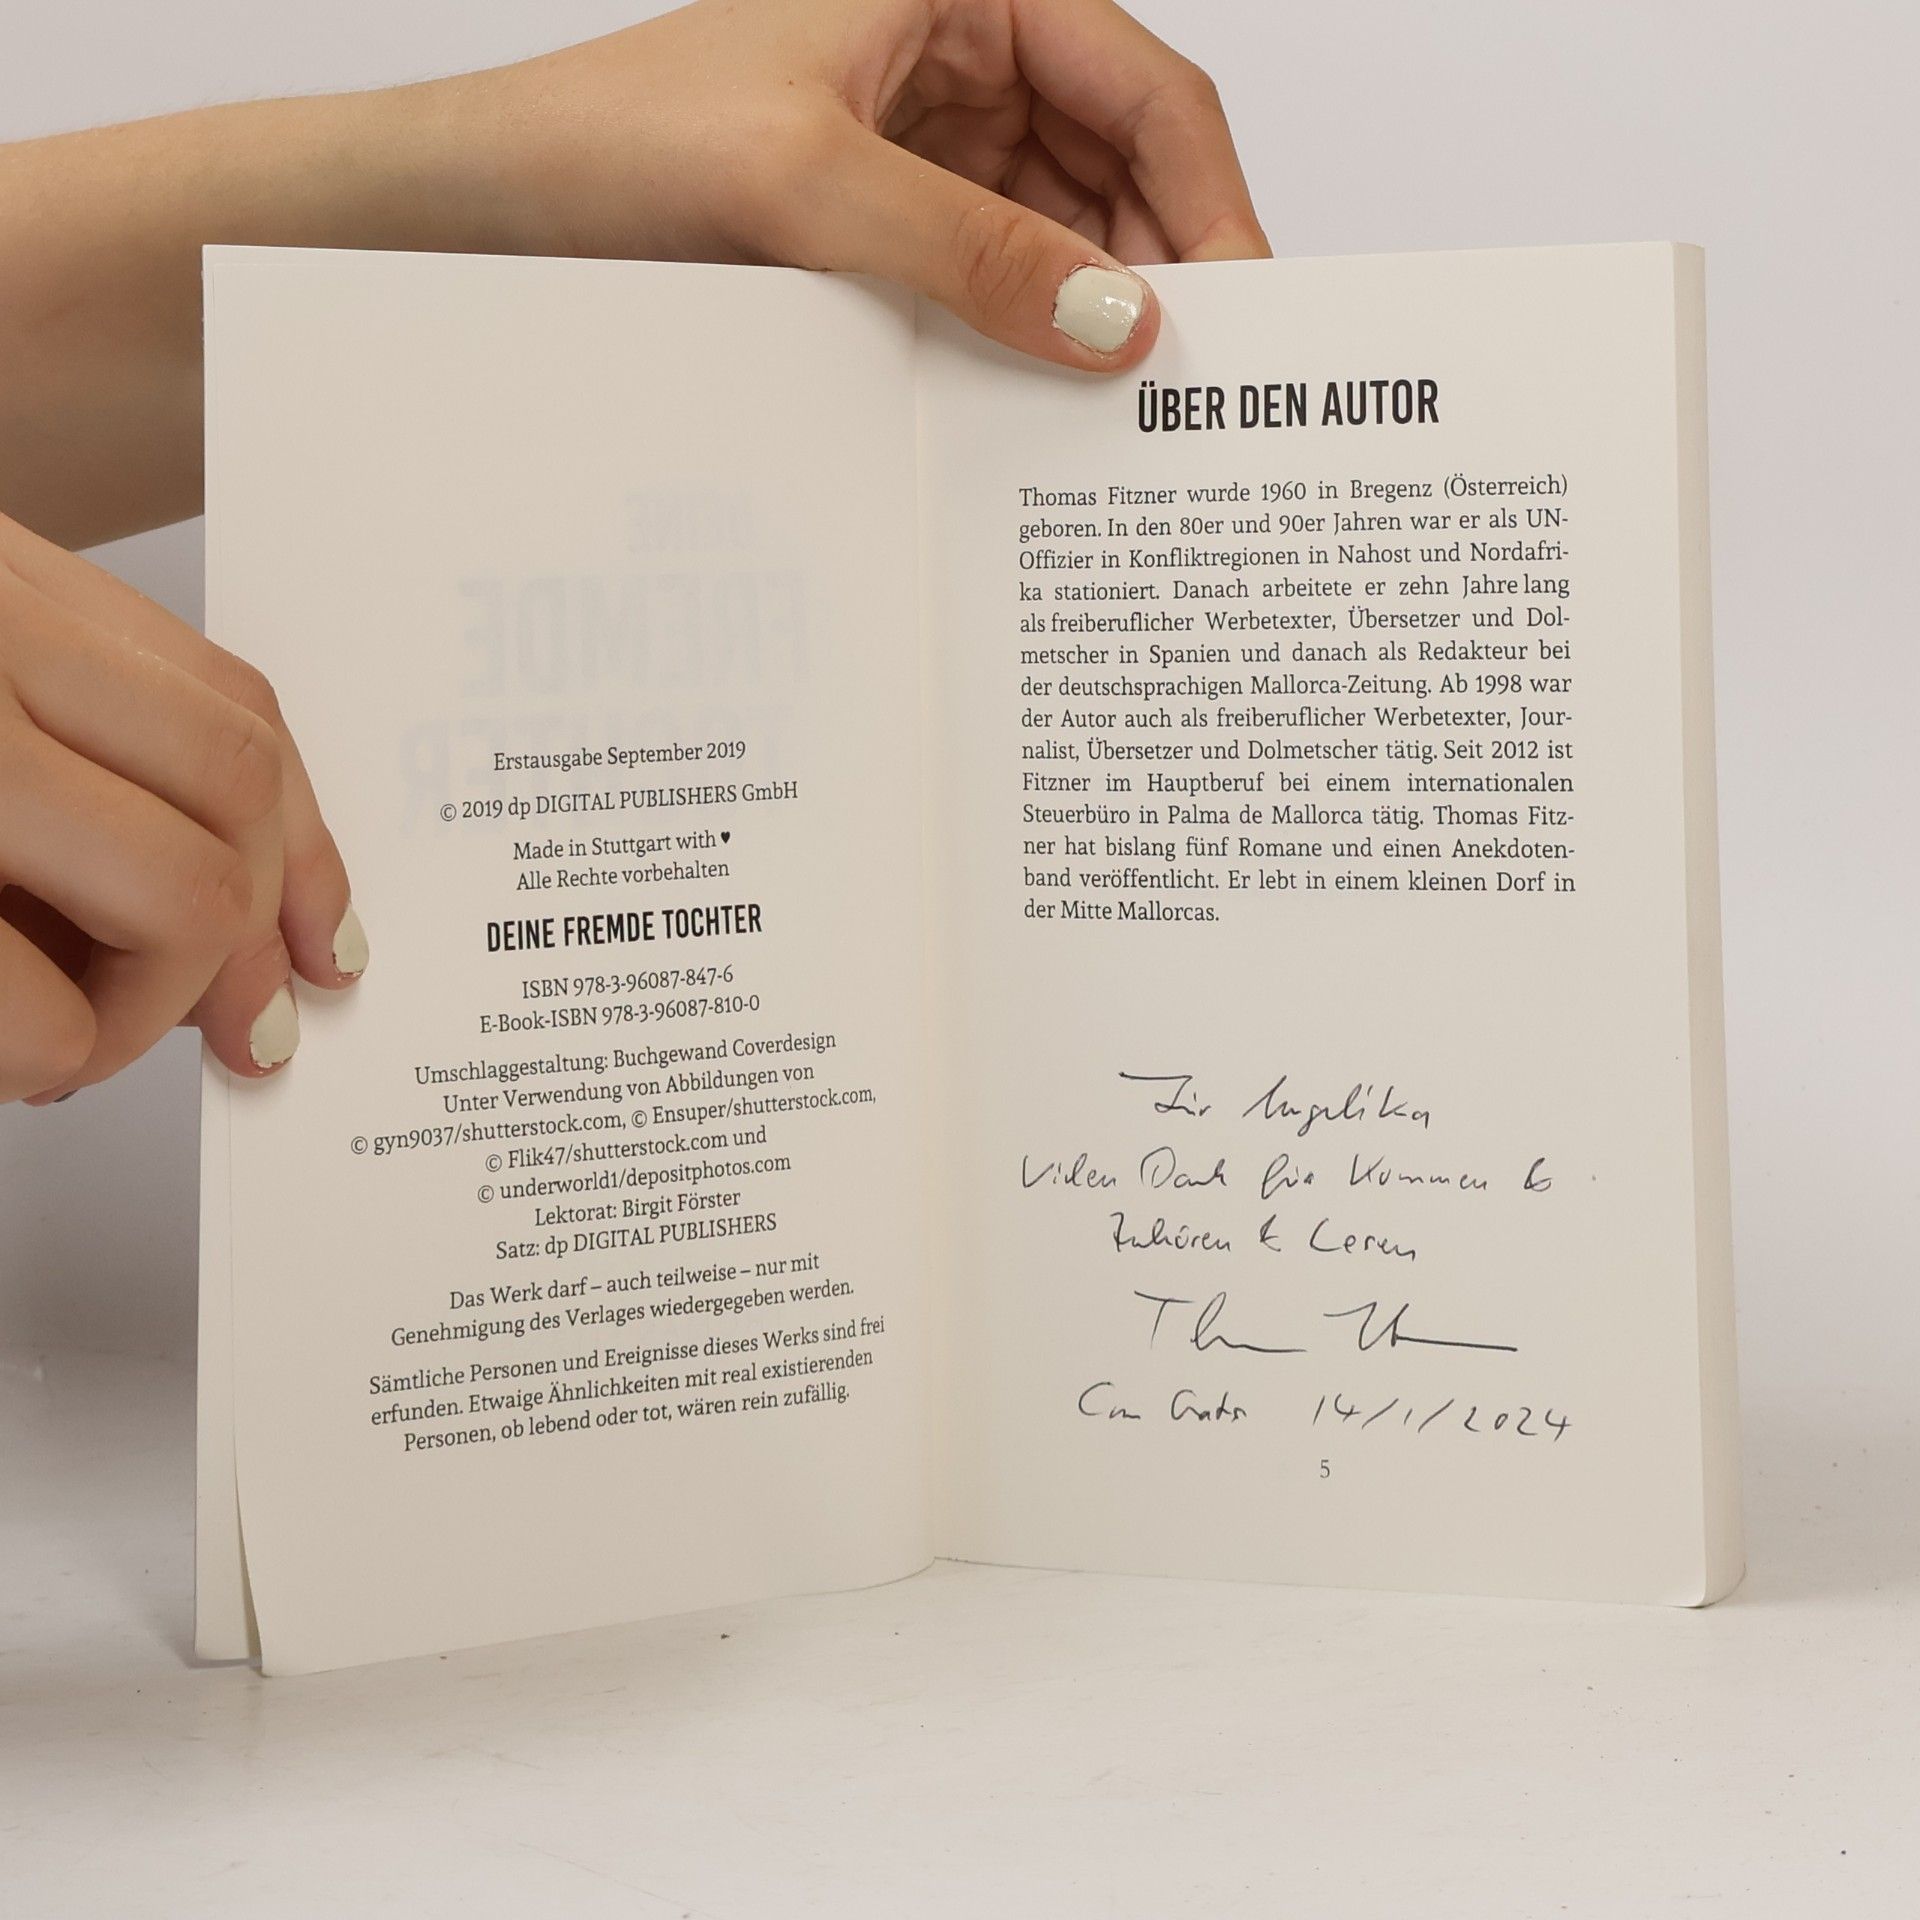 Erstausgabe September 2019
© 2019 dp DIGITAL PUBLISHERS GmbH
Made in Stuttgart with ♥
Alle Rechte vorbehalten
DEINE FREMDE TOCHTER
ISBN 978-3-96087-847-6
E-Book-ISBN 978-3-96087-810-0
Umschlaggestaltung: Buchgewand Coverdesign
Unter Verwendung von Abbildungen von
© gyn9037/shutterstock.com, © Ensuper/shutterstock.com,
© Flik47/shutterstock.com und
© underworld1/depositphotos.com
Lektorat: Birgit Förster
Satz: dp DIGITAL PUBLISHERS
Das Werk darf – auch teilweise – nur mit
Genehmigung des Verlages wiedergegeben werden.
Sämtliche Personen und Ereignisse dieses Werks sind frei
erfunden. Etwaige Ähnlichkeiten mit real existierenden
Personen, ob lebend oder tot, wären rein zufällig.
ÜBER DEN AUTOR
Thomas Fitzner wurde 1960 in Bregenz (Österreich)
geboren. In den 80er und 90er Jahren war er als UN-
Offizier in Konfliktregionen in Nahost und Nordafri-
ka stationiert. Danach arbeitete er zehn Jahre lang
als freiberuflicher Werbetexter, Übersetzer und Dol-
metscher in Spanien und danach als Redakteur bei
der deutschsprachigen Mallorca-Zeitung. Ab 1998 war
der Autor auch als freiberuflicher Werbetexter, Jour-
nalist, Übersetzer und Dolmetscher tätig. Seit 2012 ist
Fitzner im Hauptberuf bei einem internationalen
Steuerbüro in Palma de Mallorca tätig. Thomas Fitz-
ner hat bislang fünf Romane und einen Anekdoten-
band veröffentlicht. Er lebt in einem kleinen Dorf in
der Mitte Mallorcas.
Für Angelika
Vielen Dank für Kommen &
Zuhören & Lesen
14/1/2024
5